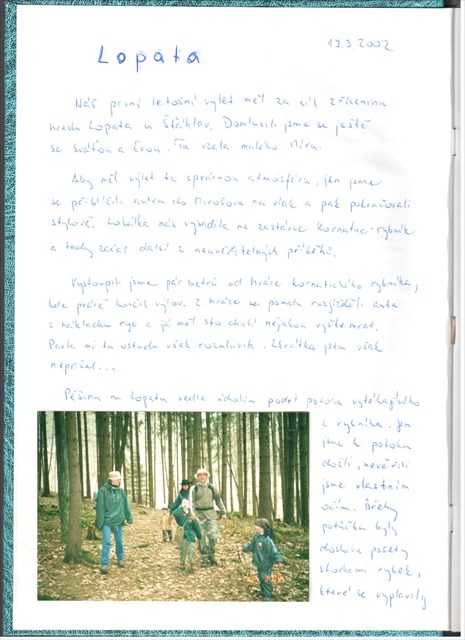 17.3.2002
Lopata
Náš první letošní výlet měl za cíl zříceninu
hradu Lopata u Šťáhlav. Domluvili jsme se ještě
se Sváťou a Evou. Ta vzala malého Míru.
Aby měl výlet tu správnou atmosféru, jen jsme
se přiblížili autem do Mirošova na vlak a pak pokračovali
stylově. Lokálka nás vysadila na zastávce Kornatice-rybník
a tady začal další z neuvěřitelných příběhů.
Vystoupili jsme pár metrů od hráze kornatického rybníka,
kde právě končil výlov. Z hráze se pomalu rozjížděli auta
s nákladem ryb a já měl sto chutí nějakou vyžebrat.
Pavla mi tu ostudu však rozmluvila. Zkrátka jsem však
nepřišel...
Pěšina na Lopatu vedla údolím podél potoka vytékajícího
z rybníka. Jen
jsme k potoku
došli, nevěřili
jsme vlastním
očím. Břehy
potůčku byly
doslova posety
stovkami rybek,
které se vyplavily